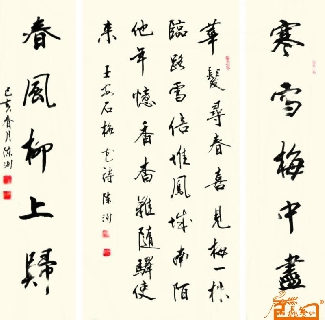 寒雪梅中盡
華髮尋春喜見梅一株
臨路雪倍堆鳳城南陌
他年憶香杳難隨驛使
來 王安石梅花詩 陈澍
春風柳上歸
己亥春月陈澍